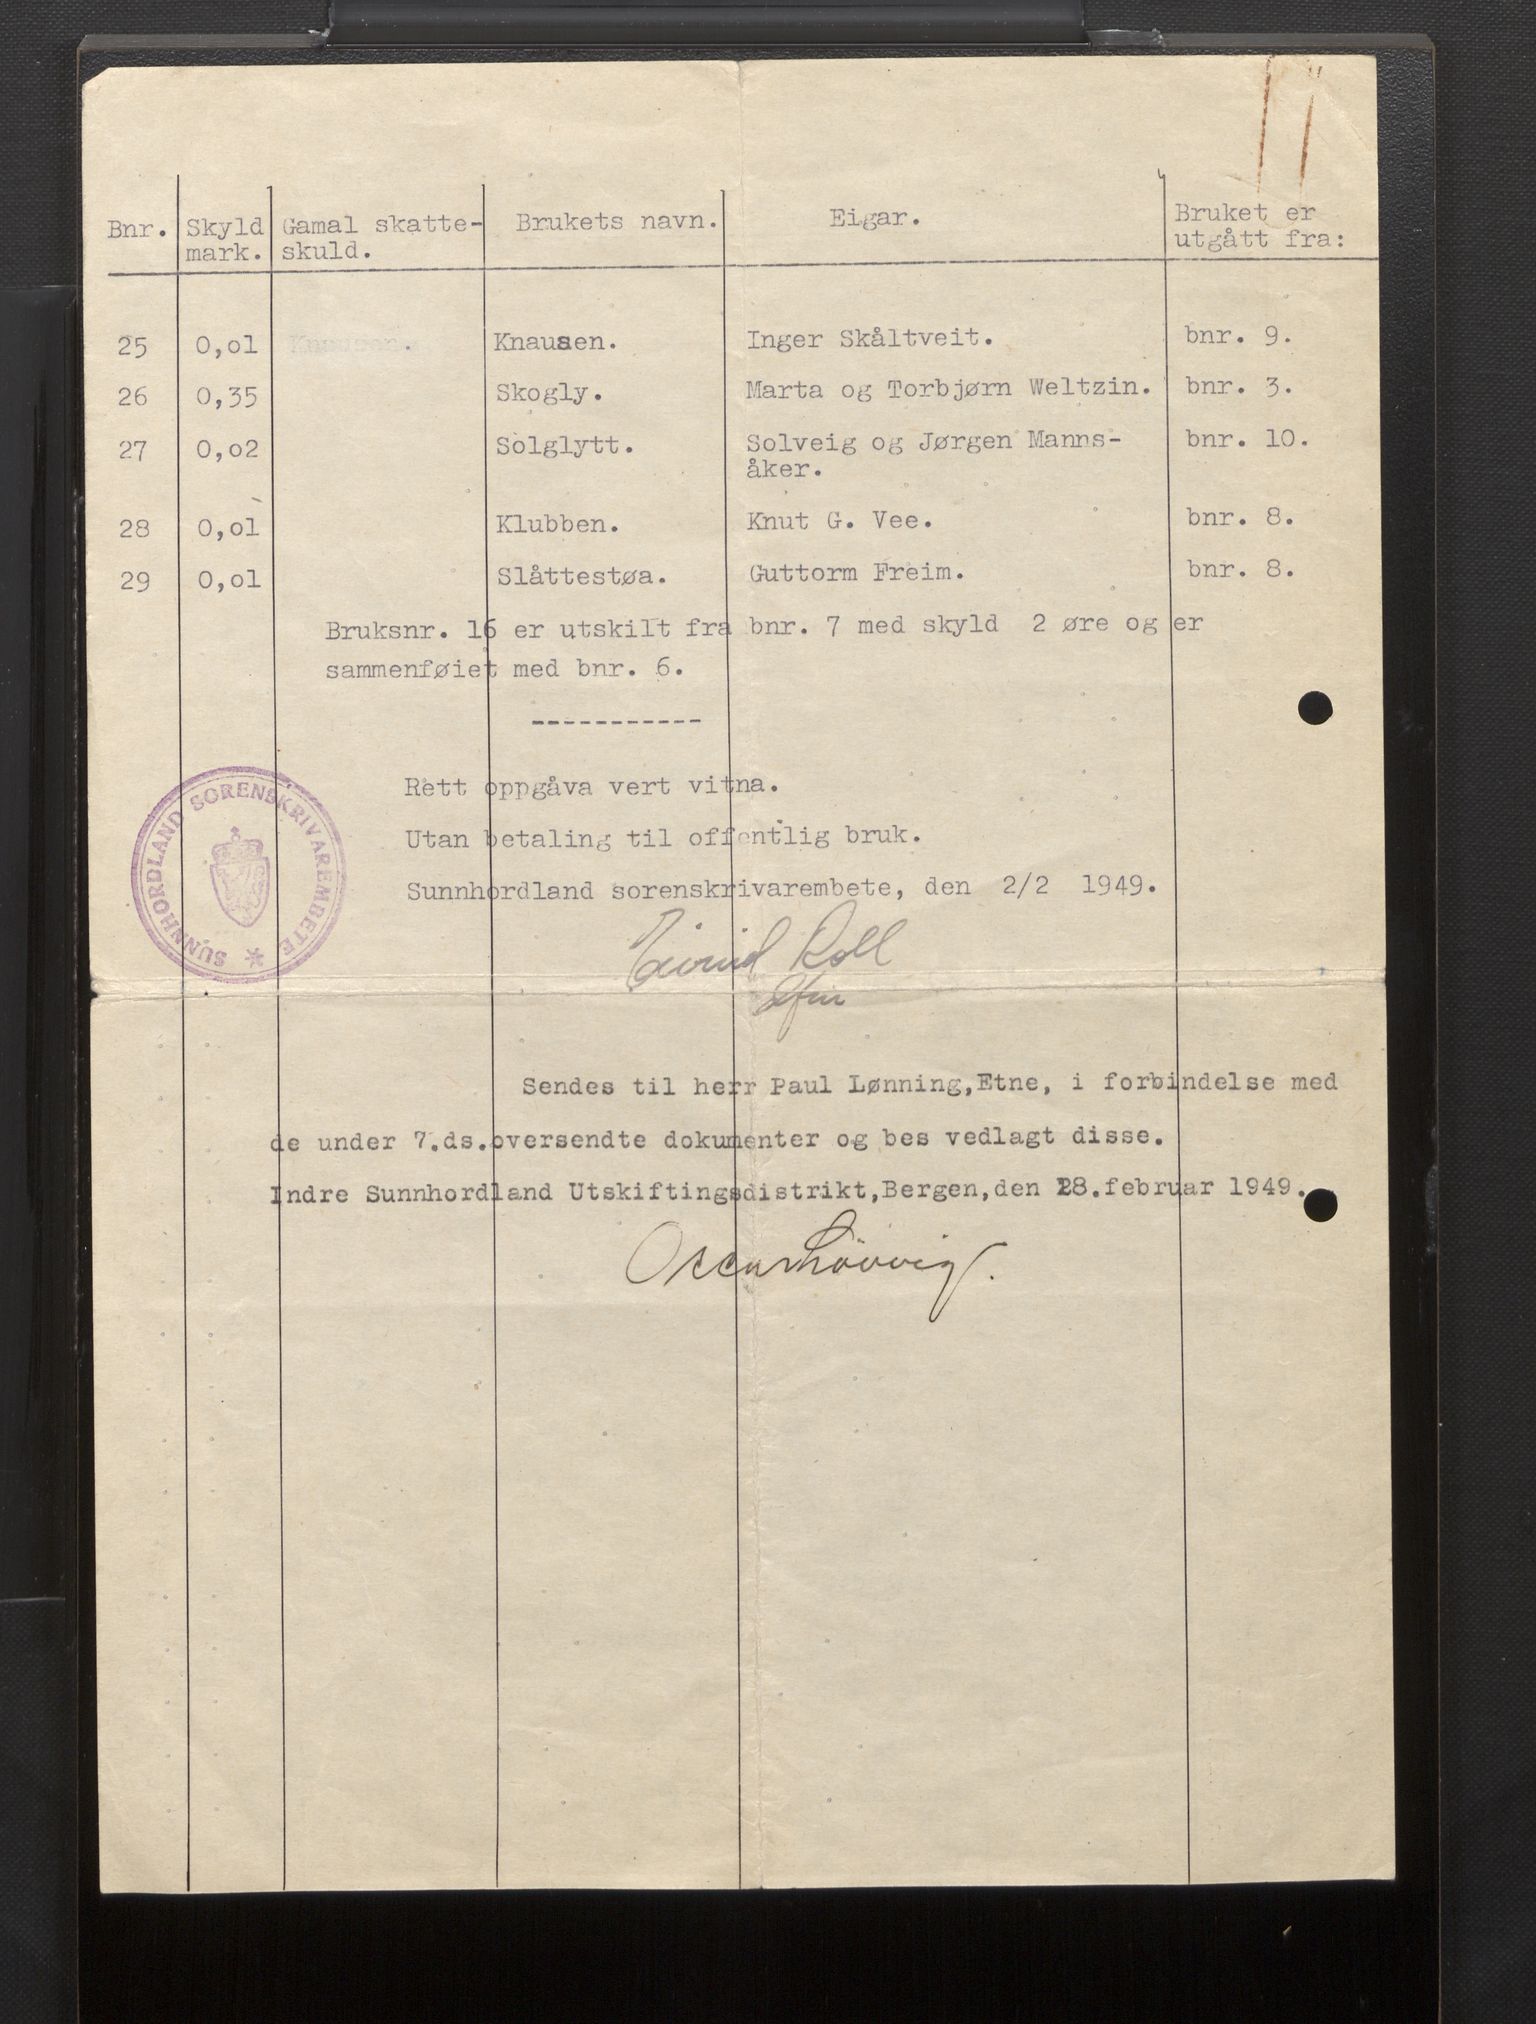 Bnr. Skyld mark. Gamal skatte-skuld. Brukets navn. Eigar. Bruket er utgått fra:
25 0,o1 Knausen. Knausen. Inger Skåltveit. bnr. 9.
26 0,35 Skogly. Marta og Torbjørn Weltzin. bnr. 3.
27 0,o2 Solglytt. Solveig og Jørgen Manns- bnr. 10.
åker.
28 0,o1 Klubben. Knut G. Vee. bnr. 8.
29 0,o1 Slåttestøa. Guttorm Freim. bnr. 8.
Bruksnr. 16 er utskilt fra bnr. 7 med skyld 2 øre og er
sammenføiet med bnr. 6.
-----------
Rett oppgåva vert vitna.
Utan betaling til offentlig bruk.
Sunnhordland sorenskrivarembete, den 2/2 1949.
SUNNHORDLAND SORENSKRIVAREMBETE
Eivind Roll
Sendes til herr Paul Lønning,Etne, i forbindelse med
de under 7.ds.oversendte dokumenter og bes vedlagt disse.
Indre Sunnhordland Utskiftingsdistrikt,Bergen,den 28.februar 1949.
Oscar Løvvig.